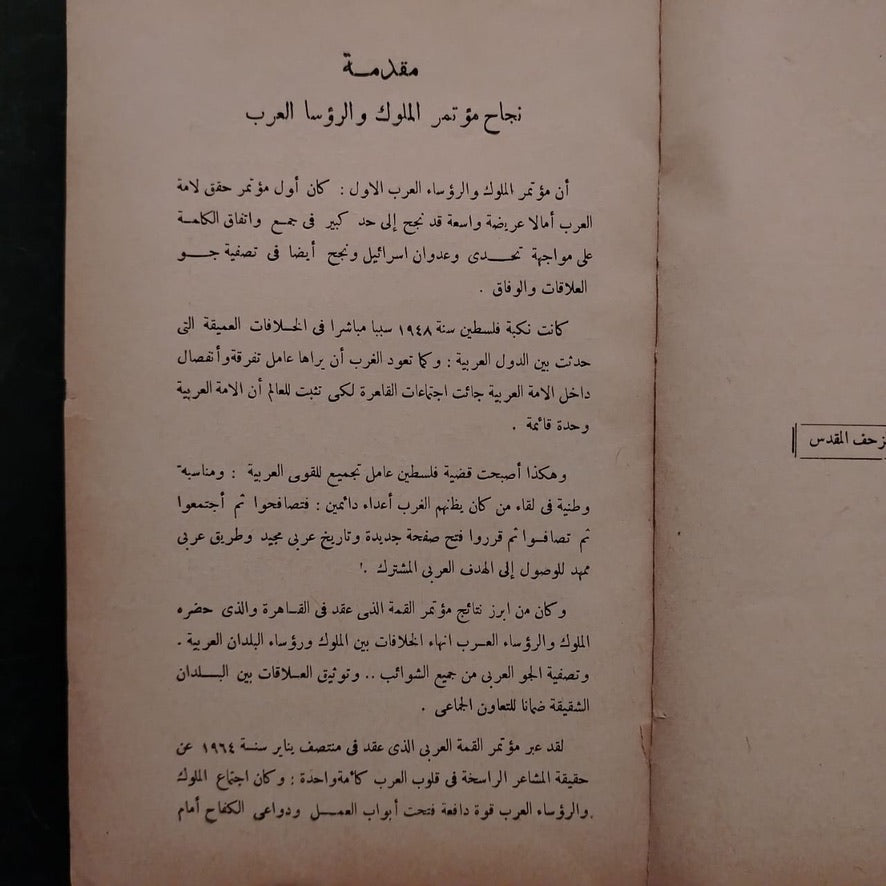 مقدمـــة
نجاح مؤتمر الملوك والرؤسا العرب
أن مؤتمر الملوك والرؤساء العرب الاول : كان أول مؤتمر حقق لامة
العرب أمالا عريضة واسعة قد نجح إلى حد كبير فى جمع واتفاق الكلمة
على مواجهة تحدى وعدوان اسرائيل ونجح أيضا فى تصفية جو
العلاقات والوفاق .
كانت نكبة فلسطين سنة ١٩٤٨ سببا مباشرا فى الخلافات العميقة التى
حدثت بين الدول العربية : وكما تعود الغرب أن يراها عامل تفرقة وأنفصال
داخل الامة العربية جائت اجتماعات القاهرة لكى تثبت للعالم أن الامة العربية
وحدة قائمة .
وهكذا أصبحت قضية فلسطين عامل تجميع للقوى العربية : ومناسبة
وطنية فى لقاء من كان يظنهم الغرب أعداء دائمين : فتصافحوا ثم أجتمعوا
ثم تصافوا ثم قرروا فتح صفحة جديدة وتاريخ عربى مجيد وطريق عربى
ممهد للوصول إلى الهدف العربى المشترك .
وكان من ابرز نتائج مؤتمر القمة الذى عقد فى القاهرة والذى حضره
الملوك والرؤساء العرب انهاء الخلافات بين الملوك ورؤساء البلدان العربية .
وتصفية الجو العربى من جميع الشوائب .. وتوثيق العلاقات بين البلدان
الشقيقة ضمانا للتعاون الجماعى .
لقد عبر مؤتمر القمة العربى الذى عقد فى منتصف يناير سنة ١٩٦٤ عن
حقيقة المشاعر الراسخة فى قلوب العرب كأمة واحدة : وكان اجتماع الملوك
والرؤساء العرب قوة دافعة فتحت أبواب العمل ودواعى الكفاح أمام
المقدس